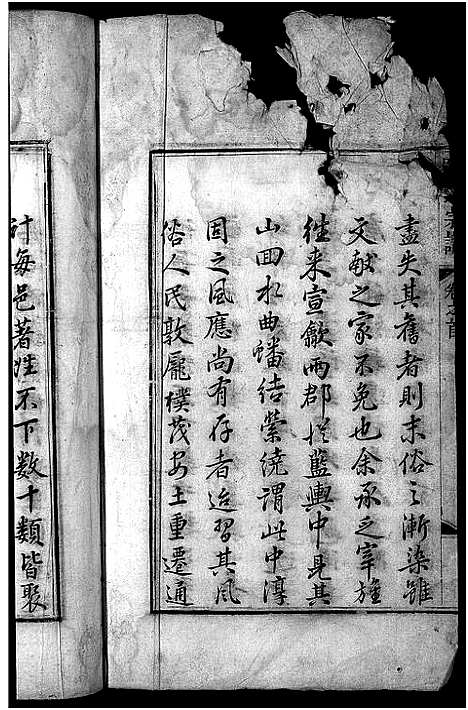 宗譜 卷之首
盡失其舊者則末俗之漸染雖
文獻之家不免也余承乏宰旌
往來宣歙兩郡於藍輿中見其
山回水曲蟠結縈繞謂此中淳
固之風應尚有存者迨習其風
俗人民敦龐樸茂安土重遷通
計每邑著姓不下數十類皆聚